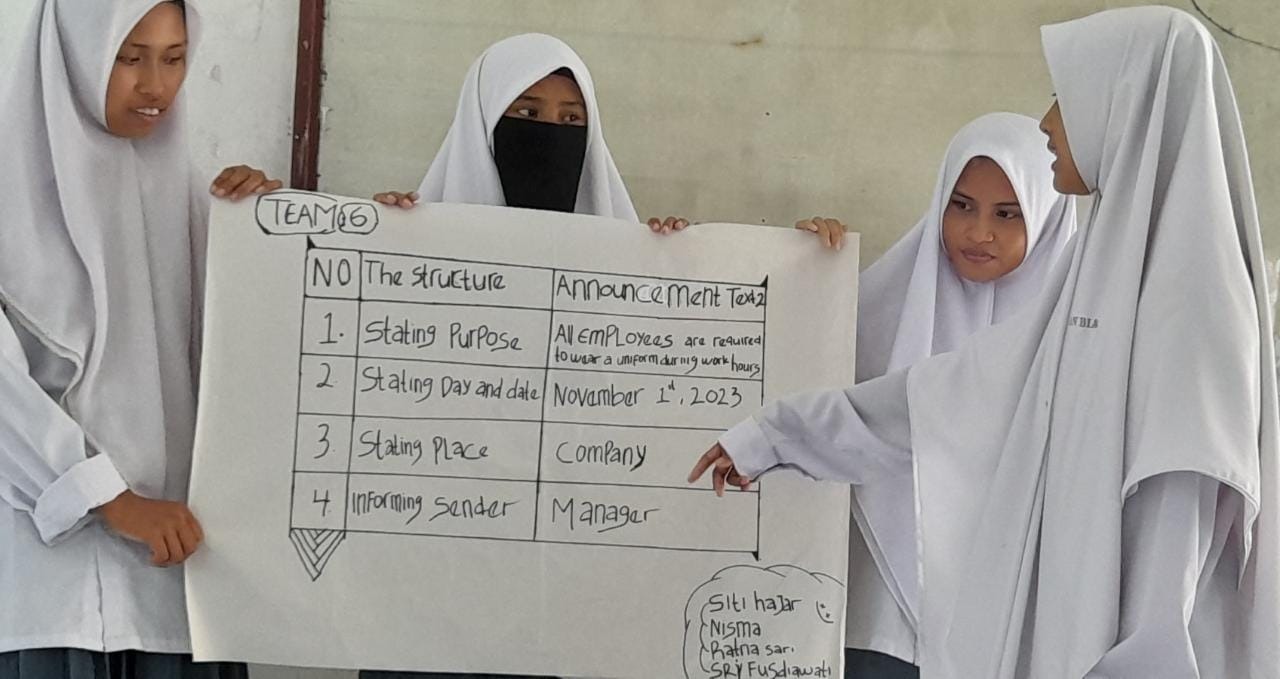 TEAM 6
NO The structure Announcement Text 2
1. Stating Purpose All employees are required
to wear a uniform during work hours
2. Stating Day and date November 1st, 2023
3. Stating Place Company
4. Informing Sender Manager
Siti hajar
Nisma
Ratna sari
SRY Fusdiawati